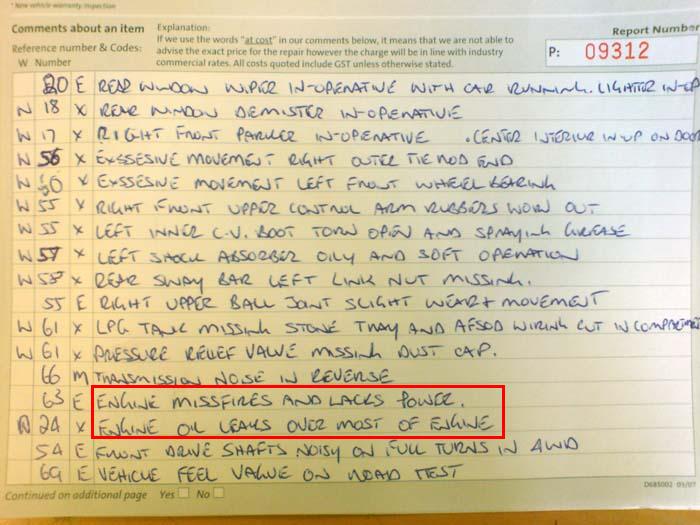 * New vehicle warranty inspection
Comments about an item
Explanation:
If we use the words "at cost" in our comments below, it means that we are not able to
Report Number
Reference number & Codes:
advise the exact price for the repair however the charge will be in line with industry
P: 09312
W Number
commercial rates. All costs quoted include GST unless otherwise stated.
80 E REAR WINDOW WIPER IN-OPERATIVE WITH CAR RUNNING. LIGHTER IN-OP
W 18 X REAR WINDOW DEMISTER IN-OPERATIVE
W 17 X RIGHT FRONT PARKER IN-OPERATIVE . CENTER INTERIOR IN-UP ON DOOR
W 56 X EXSSESIVE MOVEMENT RIGHT OUTER TIE ROD END
W 50 X EXSSESINE MOVEMENT LEFT FRONT WHEEL BEARING
W 55 X RIGHT FRONT UPPER CONTROL ARM RUBBERS WORN OUT
W 55 X LEFT INNER C.V. BOOT TORN OPEN AND SPRAYING GREASE
W 57 X LEFT SHOCK ABSORBER OILY AND SOFT OPERATION
W 58 X REAR SWAY BAR LEFT LINK NUT MISSING.
55 E RIGHT UPPER BALL JOINT SLIGHT WEAR + MOVEMENT
W 61 X LPG TANK MISSING STONE TRAY AND AFSOD WIRING CUT IN COMPARTMENT
W 61 X PRESSURE RELIEF VALVE MISSING DUST CAP.
66 M TRANSMISSION NOISE IN REVERSE
63 E ENGINE MISSFIRES AND LACKS POWER.
24 X ENGINE OIL LEAKS OVER MOST OF ENGINE
54 E FRONT DRIVE SHAFTS NOISY ON FULL TURNS IN AWD
69 E VEHICLE FEEL VALUE ON ROAD TEST
Continued on additional page Yes No
D685002 03/07